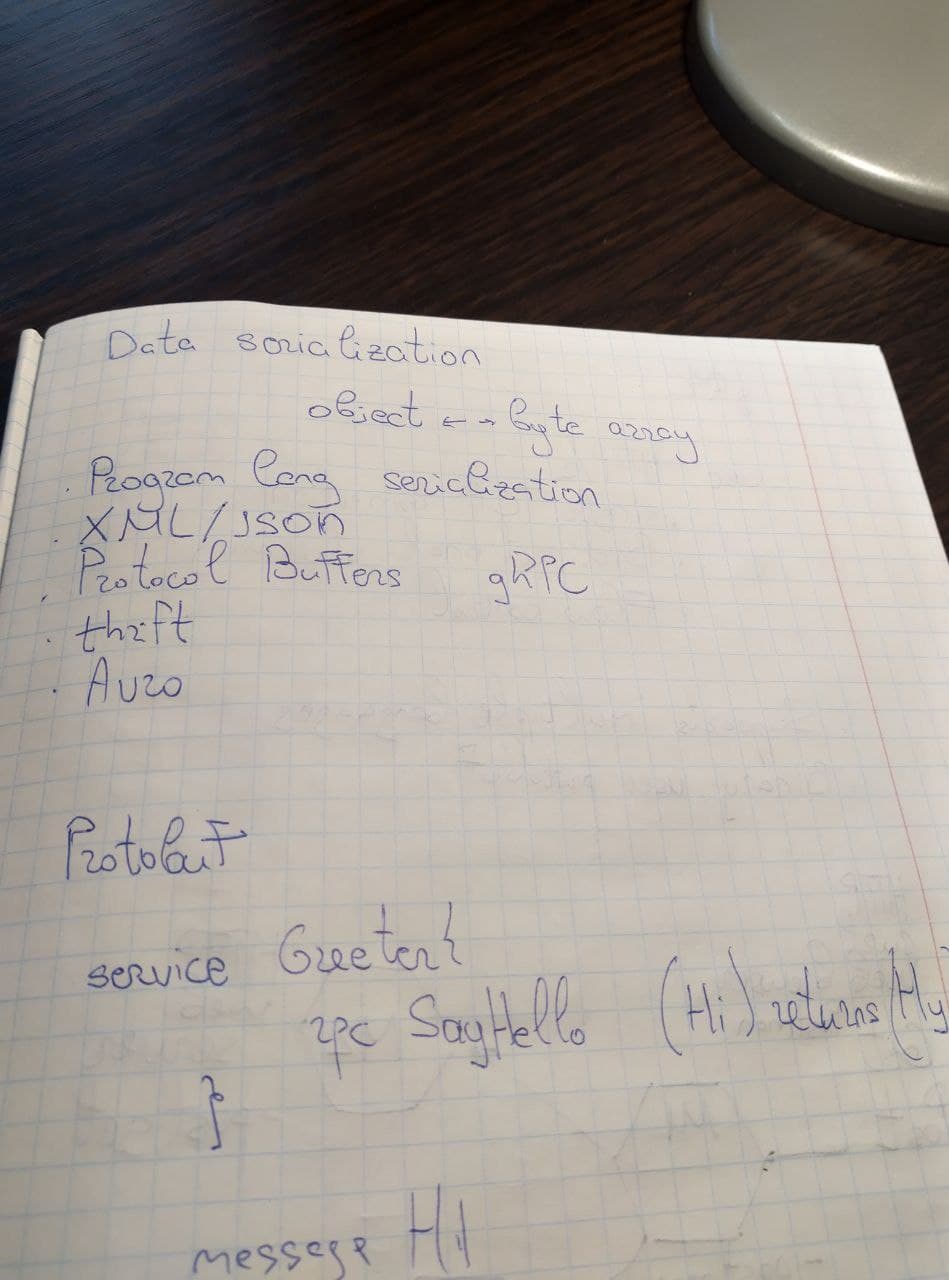 Data serialization
object ← → byte array
. Program lang serialization
. XML/JSON
. Protocol Buffers gRPC
. thrift
. Avro
Protobuf
service Greeter{
rpc SayHello (Hi) returns (Hy
}
message Hi